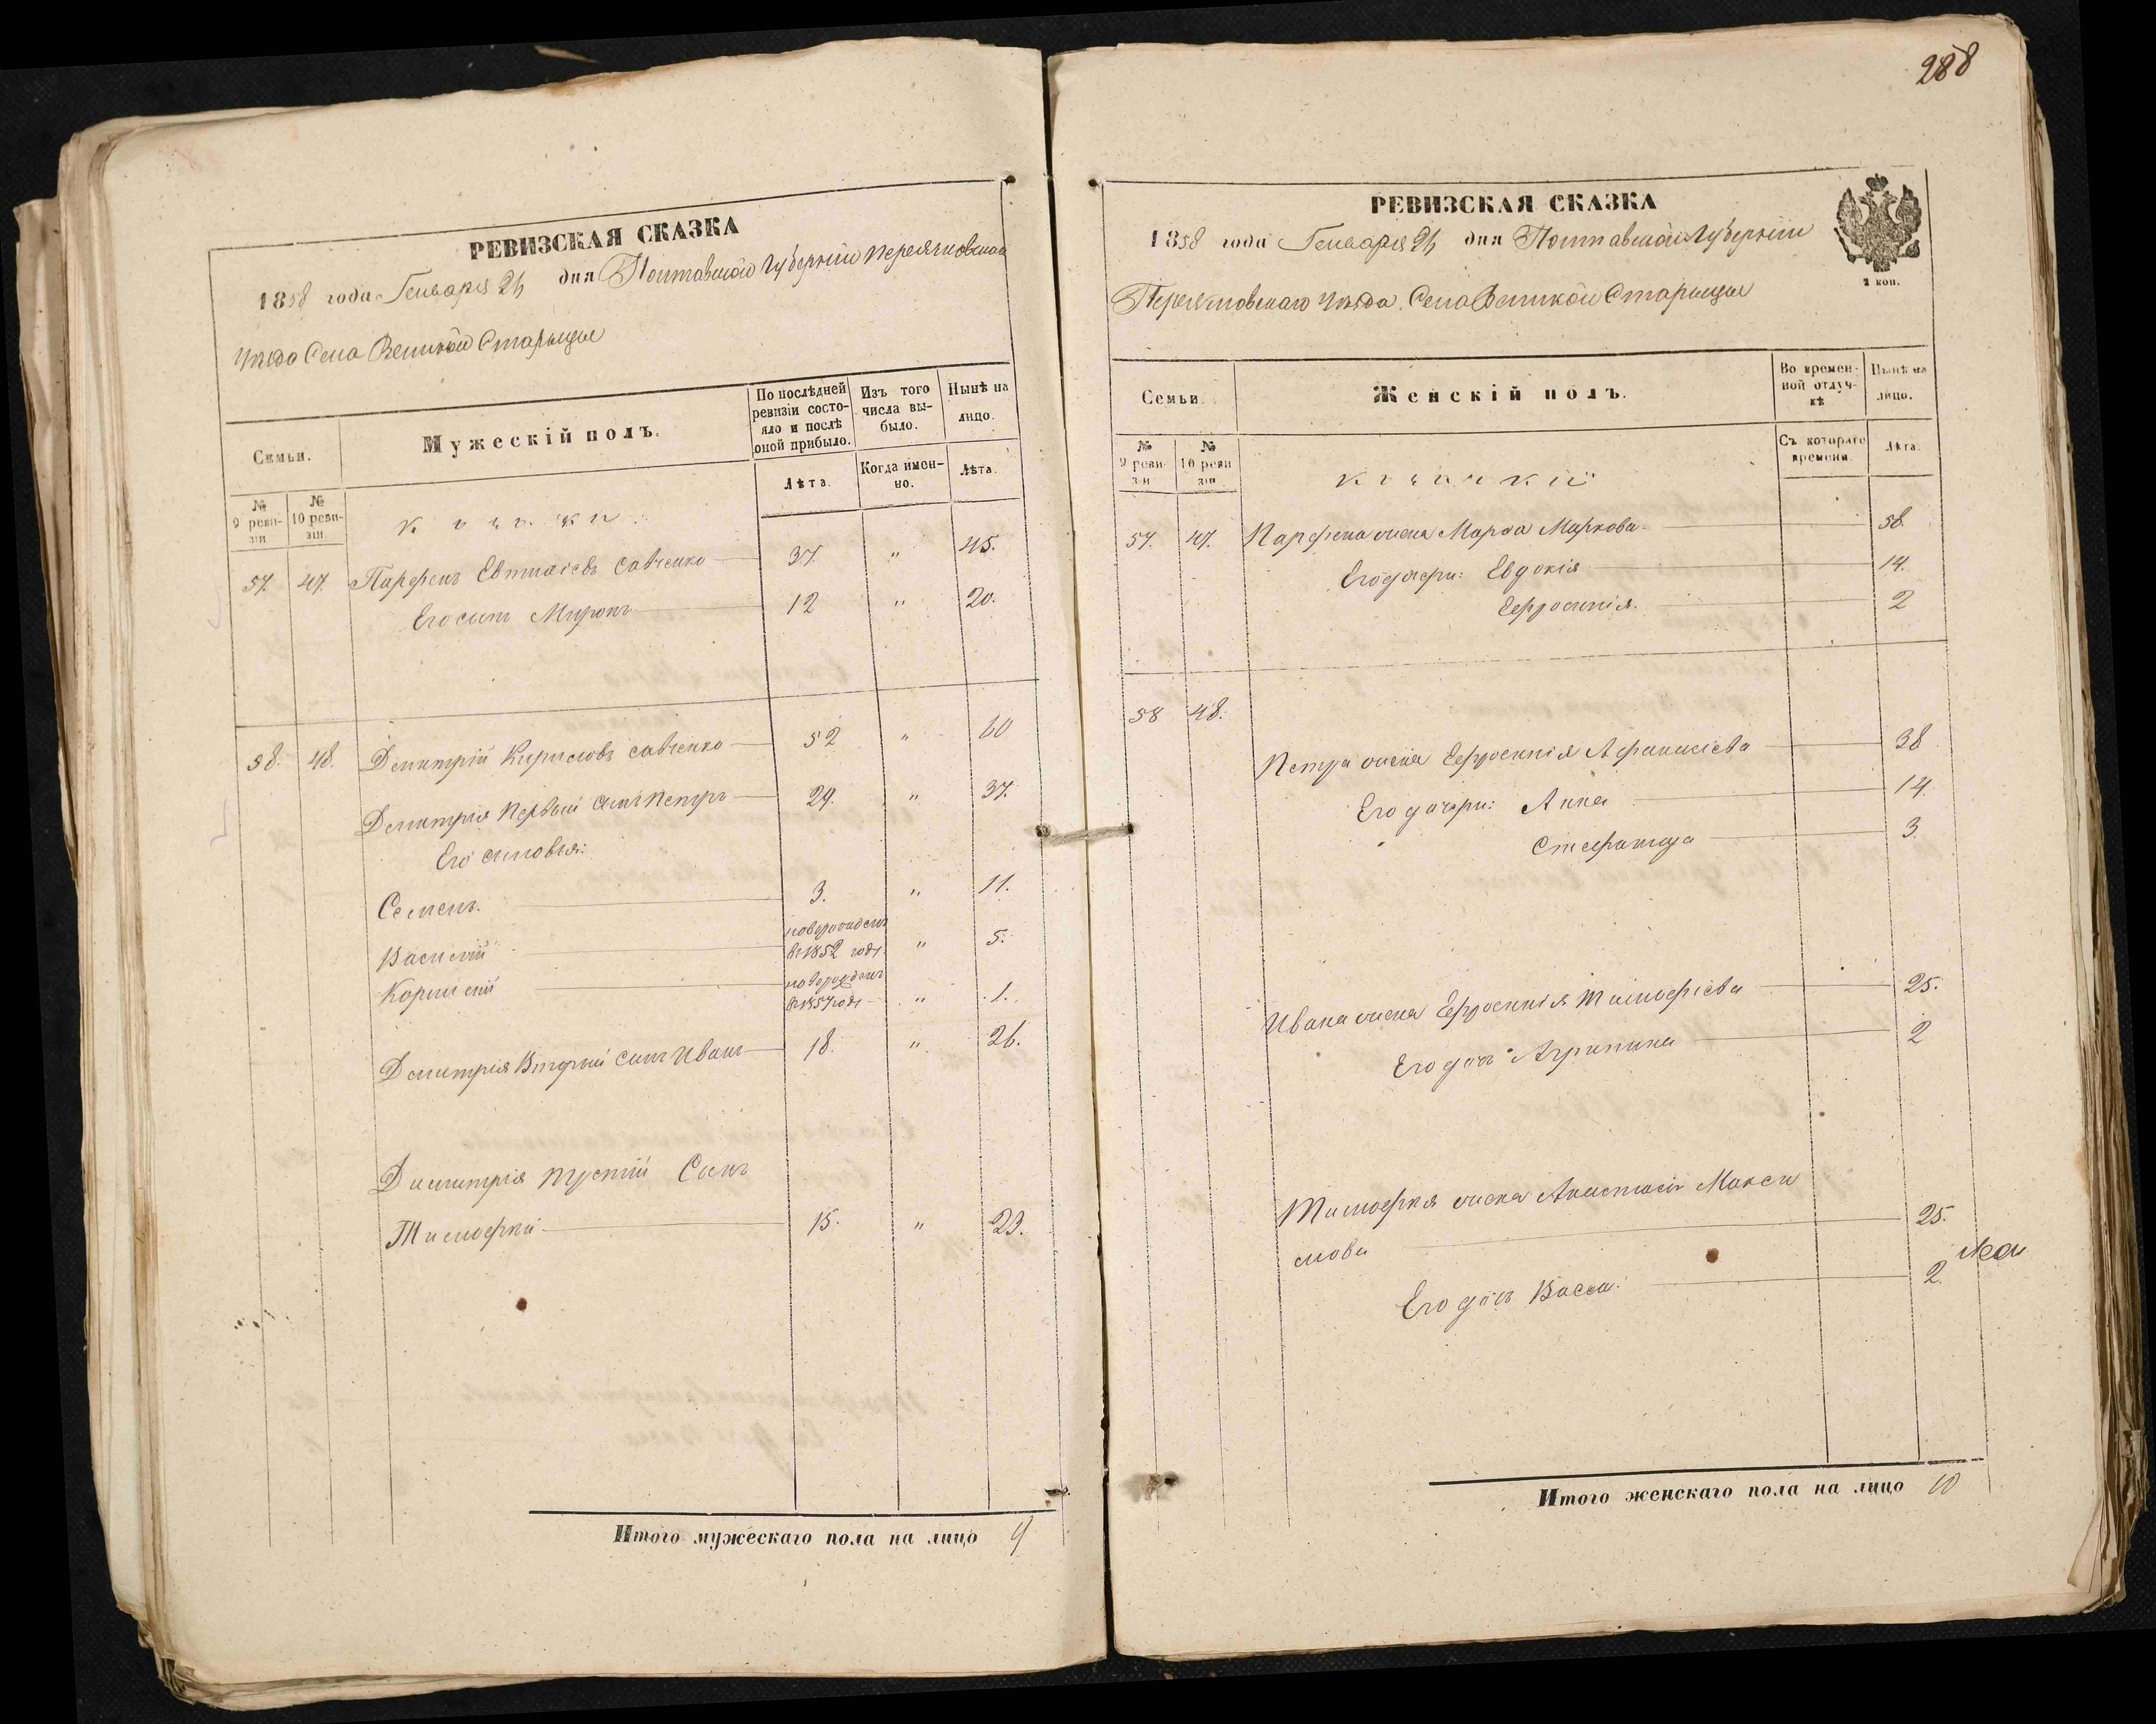 РЕВИЗСКАЯ СКАЗКА
1858 года Генваря 24 дня Полтавской Губерніи Переяславскаго
Уѣзда Села Великой Старицы
Семьи.
Мужескій полъ.
По послѣдней ревизіи состояло и послѣ оной прибыло.
Изъ того числа выбыло.
Нынѣ на лицо.
№ 9 ревизіи
№ 10 ревизіи
Лѣта.
Когда именно.
Лѣта.
57. 47. Парфенъ Савченко 37. " 45.
Его сынъ Миронъ 12 " 20.
58. 48. Димитрій Кириловъ Савченко 52 " 60
Димитрія Первый сынъ Петръ 29. " 37.
Его сыновья:
Семенъ. 3. " 11.
Василій новорожденъ въ 1852 году. " 5.
Корнилій новорожденъ въ 1857 году " 1.
Димитрія Вторый сынъ Иванъ 18. " 26.
Димитрія третій Сынъ
Тимофей 15. " 23.
Итого мужескаго пола на лицо 9
288
РЕВИЗСКАЯ СКАЗКА
1858 года Генваря 24 дня Полтавской Губерніи
2 коп.
Переяславскаго Уѣзда Села Великой Старицы
Семьи.
Женскій полъ.
Во временной отлучкѣ
Нынѣ на лицо.
№ 9 ревизіи
№ 10 ревизіи
Съ котораго времени.
Лѣта.
57. 47. Парфена жена Марфа Маркова 58.
Его дочери: Евдокія 14.
Ефросинія. 2
58 48.
Петра жена Ефросинія Афанасіева 38
Его дочери: Анна 14.
3.
Ивана жена Ефросинія Тимофіева 25.
Его дочь Агрипина 2
Тимофея жена Анастасія Макси
мова 25.
Его дочь Васса. 2.
Итого женскаго пола на лицо 10